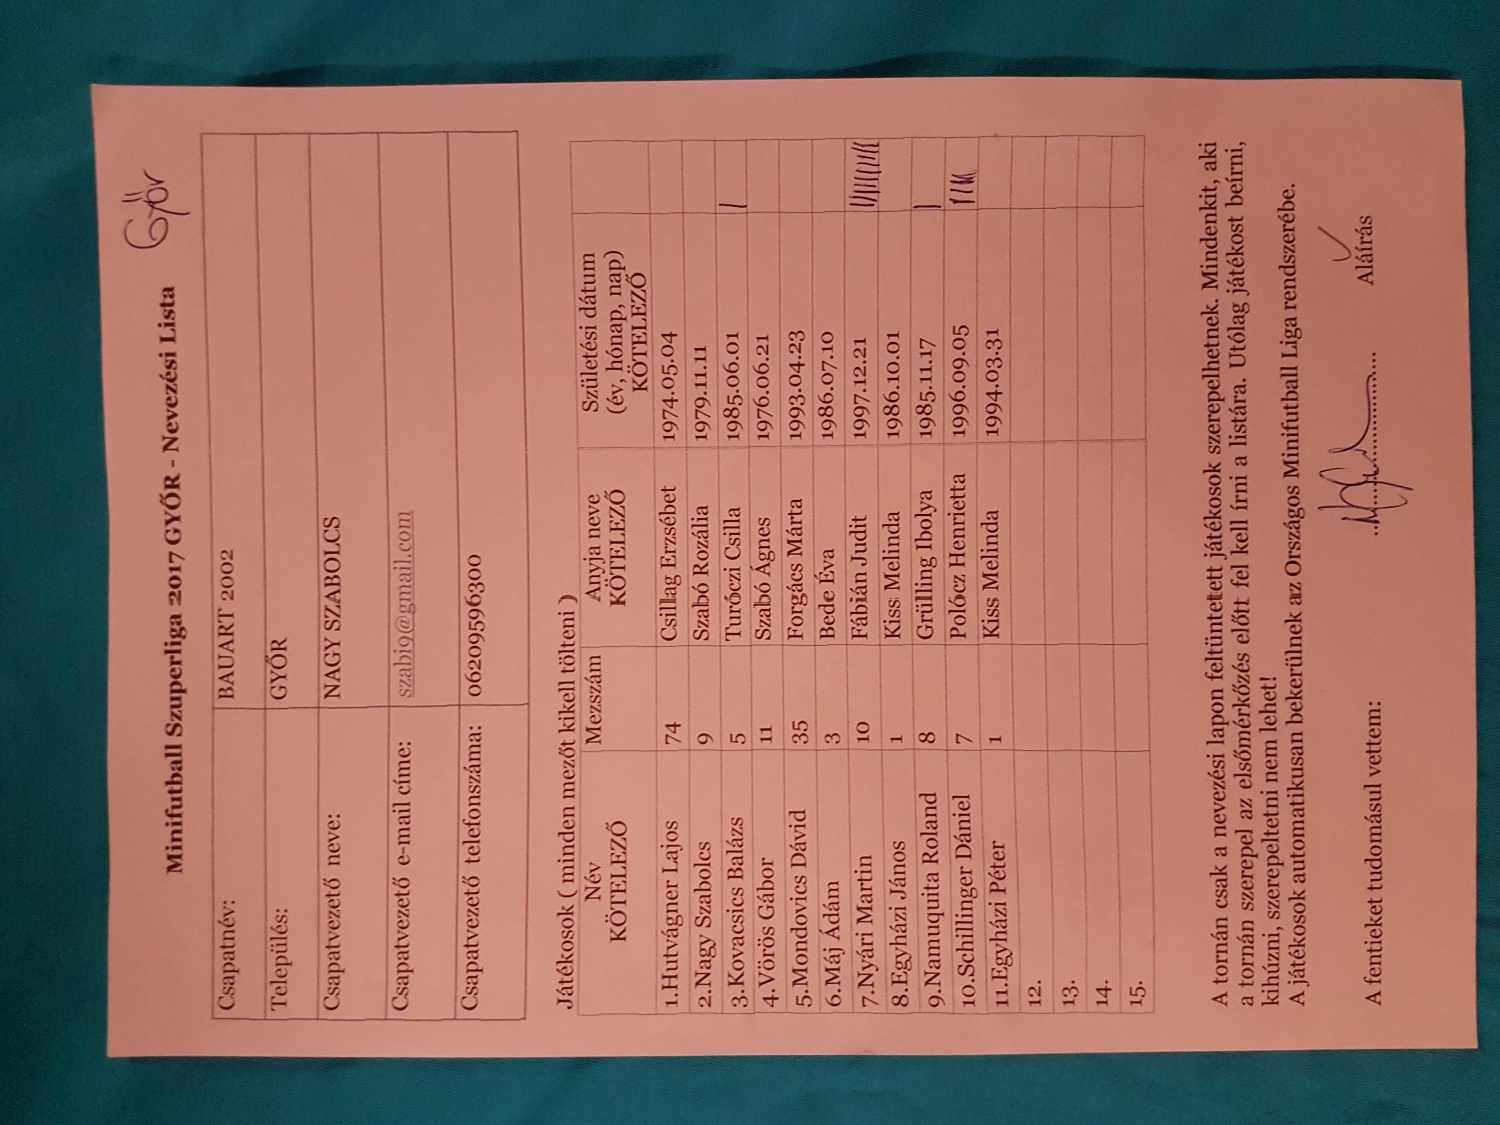 Győr
Minifutball Szuperliga 2017 GYŐR - Nevezési Lista
Csapatnév: BAUART 2002
Település: GYŐR
Csapatvezető neve: NAGY SZABOLCS
Csapatvezető e-mail címe: szabi9@gmail.com
Csapatvezető telefonszáma: 06209596300
Játékosok ( minden mezőt kikell tölteni )
Név KÖTELEZŐ Mezszám Anyja neve KÖTELEZŐ Születési dátum (év, hónap, nap) KÖTELEZŐ
1.Hutvágner Lajos 74 Csillag Erzsébet 1974.05.04
2.Nagy Szabolcs 9 Szabó Rozália 1979.11.11
3.Kovacsics Balázs 5 Turóczi Csilla 1985.06.01 |
4.Vörös Gábor 11 Szabó Ágnes 1976.06.21
5.Mondovics Dávid 35 Forgács Márta 1993.04.23
6.Máj Ádám 3 Bede Éva 1986.07.10
7.Nyári Martin 10 Fábián Judit 1997.12.21
8.Egyházi János 1 Kiss Melinda 1986.10.01
9.Namuquita Roland 8 Grülling Ibolya 1985.11.17 |
10.Schillinger Dániel 7 Polócz Henrietta 1996.09.05
11.Egyházi Péter 1 Kiss Melinda 1994.03.31
12.
13.
14.
15.
A tornán csak a nevezési lapon feltüntetett játékosok szerepelhetnek. Mindenkit, aki
a tornán szerepel az elsőmérkőzés előtt fel kell írni a listára. Utólag játékost beírni,
kihúzni, szerepeltetni nem lehet!
A játékosok automatikusan bekerülnek az Országos Minifutball Liga rendszerébe.
A fentieket tudomásul vettem: .............................. Aláírás